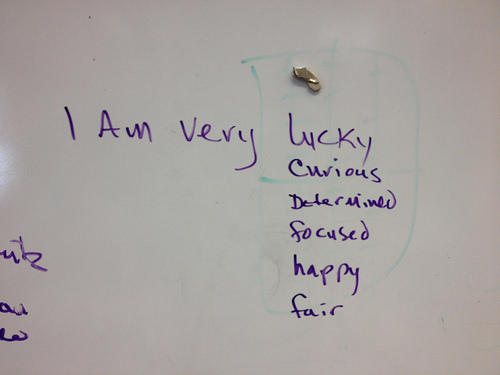 I Am very lucky
Curious
Determined
focused
happy
fair